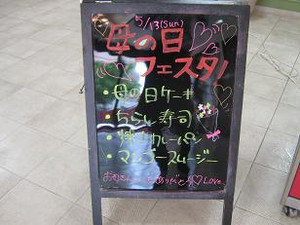 5/13(Sun)
母の日
フェスタ!
・母の日ケーキ
・ちらし寿司
・カレーパン
・マンゴースムージー
お母さん ありがとう♡Love